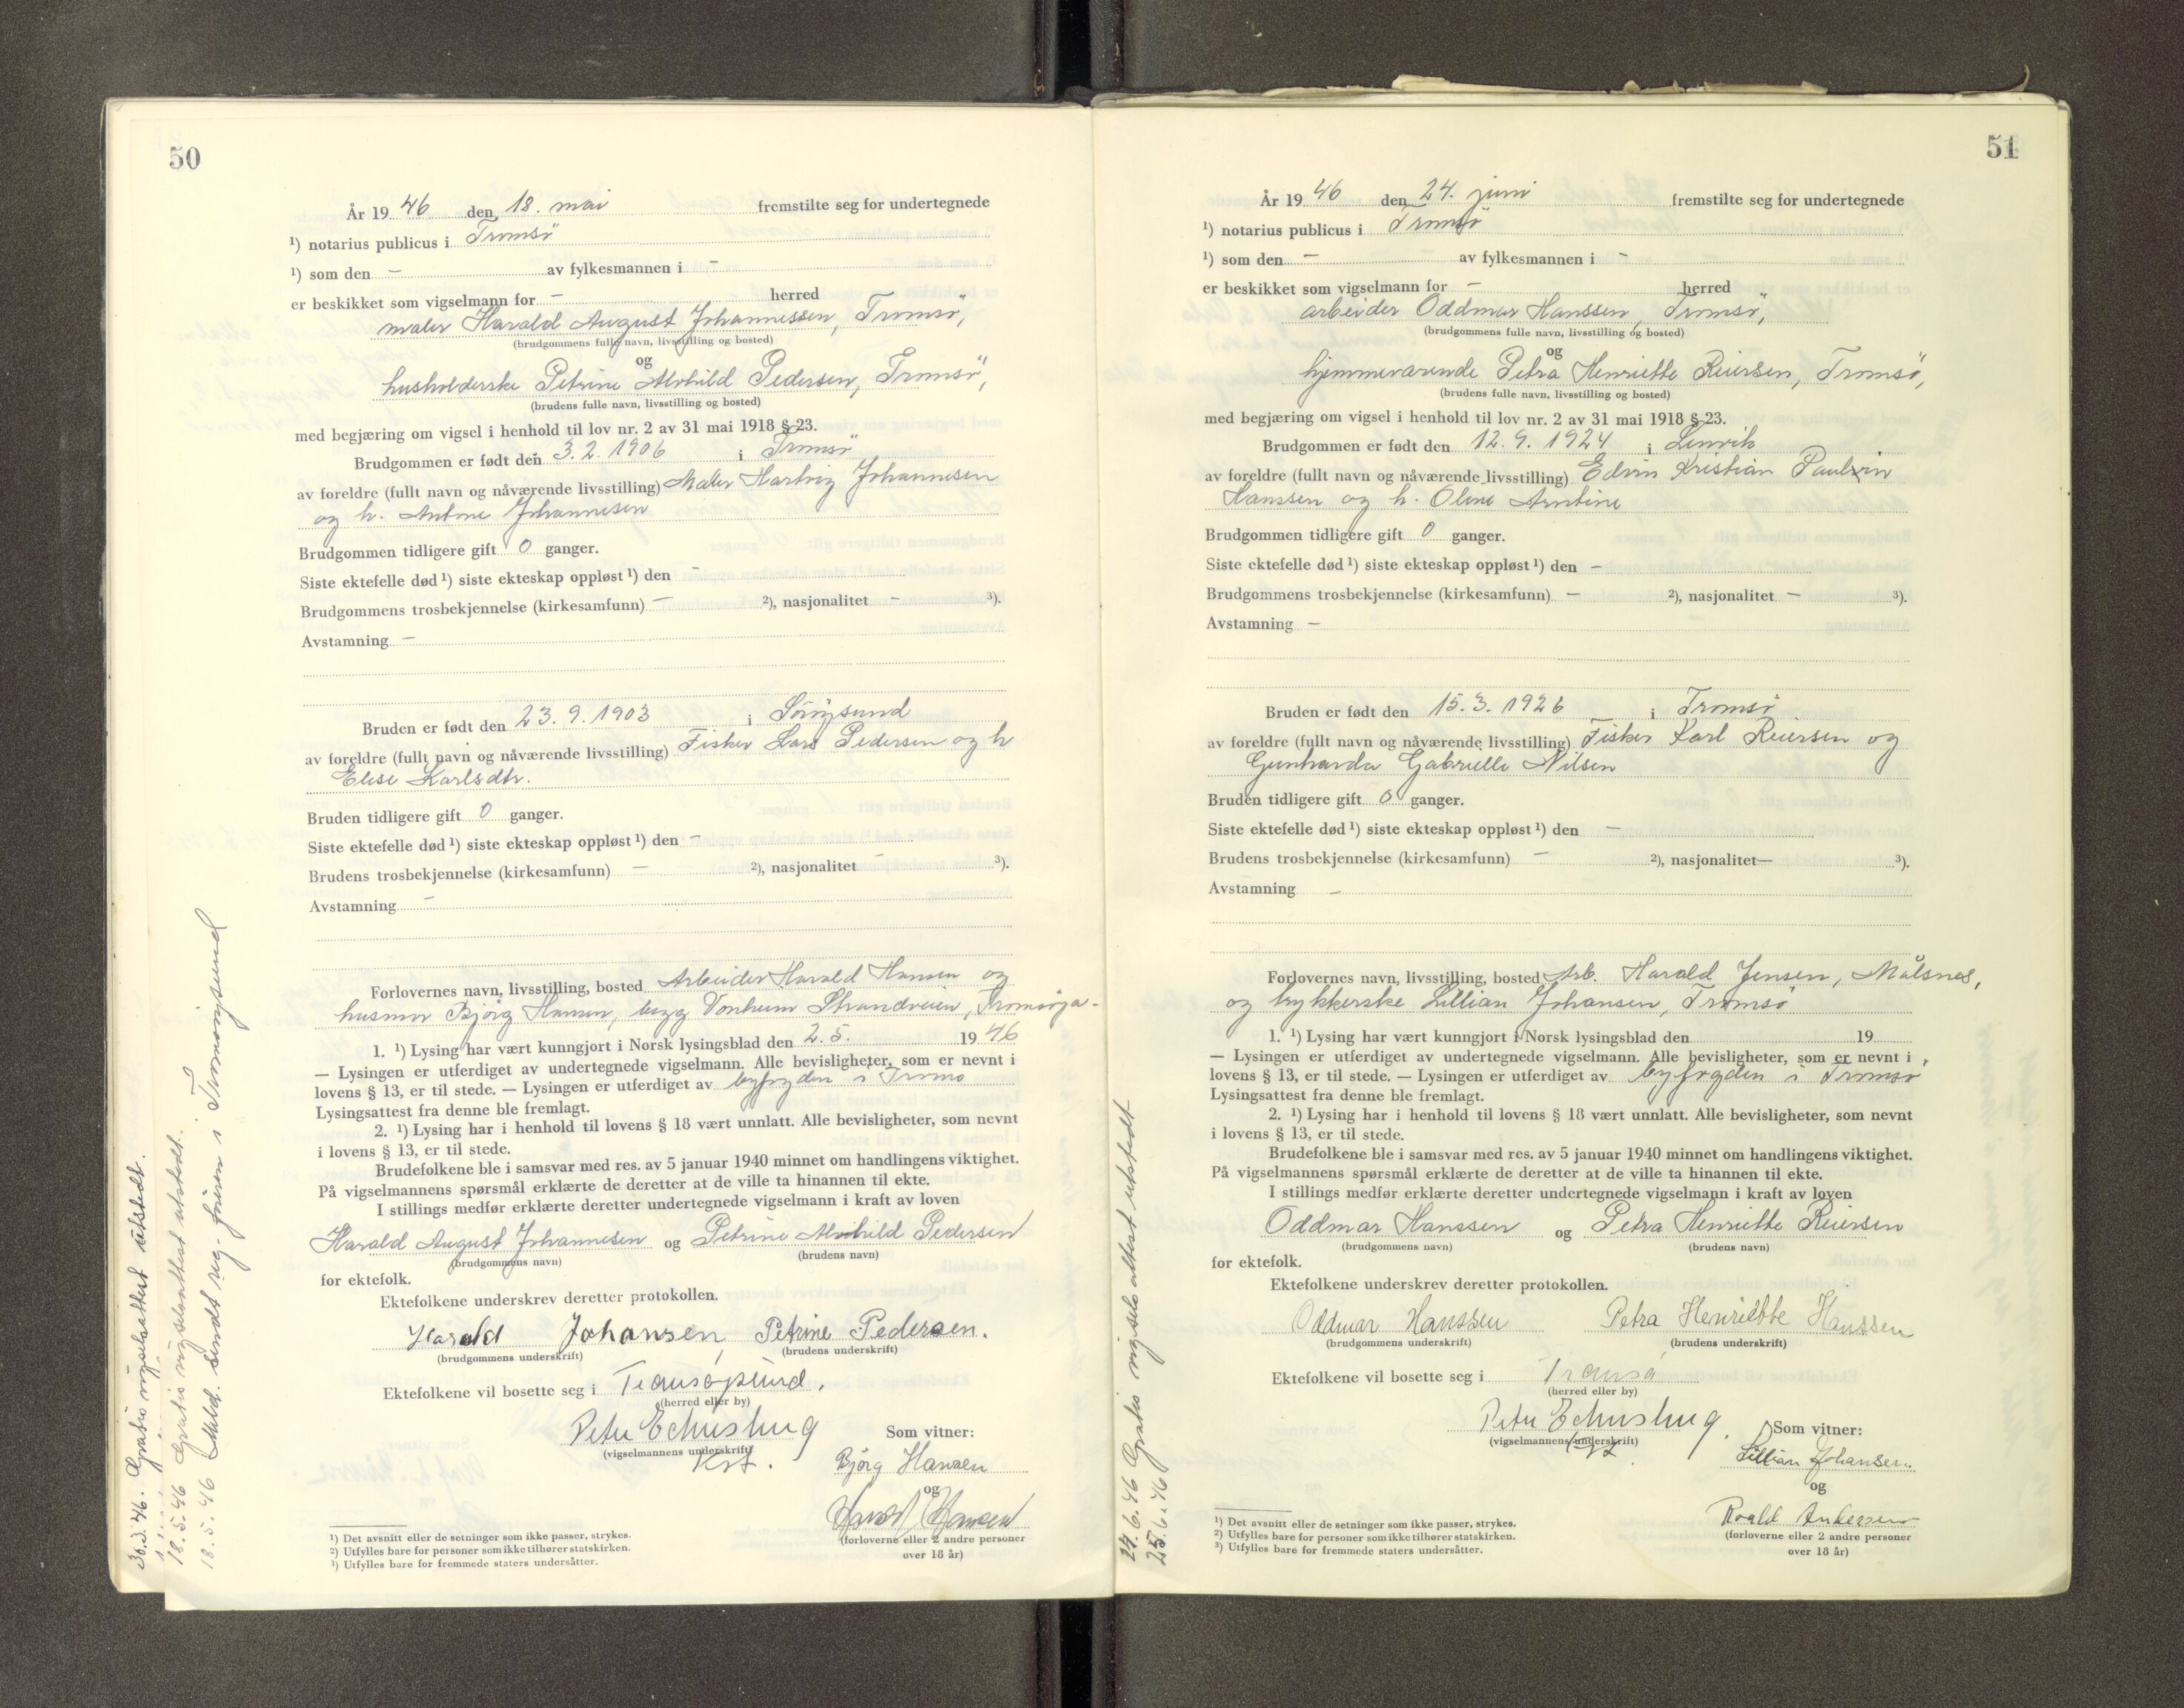 50
År 19 46 den 18. mai fremstilte seg for undertegnede
¹) notarius publicus i Tromsö
¹) som den – av fylkesmannen i –
er beskikket som vigselmann for – herred
maler Harald August Johannessen, Tromsö,
(brudgommens fulle navn, livsstilling og bosted)
og
husholderske Petrine Alvhild Pedersen, Tromsö,
(brudens fulle navn, livsstilling og bosted)
med begjæring om vigsel i henhold til lov nr. 2 av 31 mai 1918 § 23.
Brudgommen er født den 3.2.1906 i Tromsö
av foreldre (fullt navn og nåværende livsstilling) Maler Hartvig Johannesen
og h. Antone Johannesen
Brudgommen tidligere gift 0 ganger.
Siste ektefelle død ¹) siste ekteskap oppløst ¹) den –
Brudgommens trosbekjennelse (kirkesamfunn) – ²), nasjonalitet – ³).
Avstamning –
Bruden er født den 23.9.1903 i Söröysund
av foreldre (fullt navn og nåværende livsstilling) Fisker Lars Pedersen og h
Elise Karlsdtr.
Bruden tidligere gift 0 ganger.
Siste ektefelle død ¹) siste ekteskap oppløst ¹) den –
Brudens trosbekjennelse (kirkesamfunn) – ²), nasjonalitet – ³).
Avstamning –
Forlovernes navn, livsstilling, bosted Arbeider Harald Hansen og
husmor Bjørg Hansen, begg Vonheim Strandveien, Tromsöya-
1. ¹) Lysing har vært kunngjort i Norsk lysingsblad den 2.5. 19 46
— Lysingen er utferdiget av undertegnede vigselmann. Alle bevisligheter, som er nevnt i
lovens § 13, er til stede. — Lysingen er utferdiget av byfogden i Tromsö
Lysingsattest fra denne ble fremlagt.
2. ¹) Lysing har i henhold til lovens § 18 vært unnlatt. Alle bevisligheter, som nevnt
i lovens § 13, er til stede.
Brudefolkene ble i samsvar med res. av 5 januar 1940 minnet om handlingens viktighet.
På vigselmannens spørsmål erklærte de deretter at de ville ta hinannen til ekte.
I stillings medfør erklærte deretter undertegnede vigselmann i kraft av loven
Harald August Johannesen og Petrine Alvhild Pedersen
(brudgommens navn) (brudens navn)
for ektefolk.
Ektefolkene underskrev deretter protokollen.
Harald Johansen Petrine Pedersen.
(brudgommens underskrift) (brudens underskrift)
Ektefolkene vil bosette seg i Tromsøysund.
(herred eller by)
Peter
(vigselmannens underskrift)
Kst.
Som vitner:
Bjørg Hansen
og
Harald Hansen
(forloverne eller 2 andre personer
over 18 år)
¹) Det avsnitt eller de setninger som ikke passer, strykes.
²) Utfylles bare for personer som ikke tilhører statskirken.
³) Utfylles bare for fremmede staters undersåtter.
Gratis vigselsattest utstedt.
18.5.46 Gratis vigselsattest utstedt.
18.5.46 Meld. sendt reg. föreren i Tromsöysund
51
År 19 46 den 24. juni fremstilte seg for undertegnede
¹) notarius publicus i Tromsö
¹) som den – av fylkesmannen i –
er beskikket som vigselmann for – herred
arbeider Oddmar Hanssen, Tromsö,
(brudgommens fulle navn, livsstilling og bosted)
og
hjemmeværende Petra Henriette Reiersen, Tromsö,
(brudens fulle navn, livsstilling og bosted)
med begjæring om vigsel i henhold til lov nr. 2 av 31 mai 1918 § 23.
Brudgommen er født den 12.9.1924 i Lenvik
av foreldre (fullt navn og nåværende livsstilling) Edvin Kristian Paulsrin
Hanssen og h. Oline Arntine
Brudgommen tidligere gift 0 ganger.
Siste ektefelle død ¹) siste ekteskap oppløst ¹) den –
Brudgommens trosbekjennelse (kirkesamfunn) – ²), nasjonalitet – ³).
Avstamning –
Bruden er født den 15.3.1926 i Tromsö
av foreldre (fullt navn og nåværende livsstilling) Fisker Karl Reiersen og
Gunharda Gabrielle Nilsen
Bruden tidligere gift 0 ganger.
Siste ektefelle død ¹) siste ekteskap oppløst ¹) den –
Brudens trosbekjennelse (kirkesamfunn) – ²), nasjonalitet – ³).
Avstamning –
Forlovernes navn, livsstilling, bosted Arb. Harald Jensen, Målsnes,
og trykkerske Lillian Johansen, Tromsö
1. ¹) Lysing har vært kunngjort i Norsk lysingsblad den 19
— Lysingen er utferdiget av undertegnede vigselmann. Alle bevisligheter, som er nevnt i
lovens § 13, er til stede. — Lysingen er utferdiget av byfogden i Tromsö
Lysingsattest fra denne ble fremlagt.
2. ¹) Lysing har i henhold til lovens § 18 vært unnlatt. Alle bevisligheter, som nevnt
i lovens § 13, er til stede.
Brudefolkene ble i samsvar med res. av 5 januar 1940 minnet om handlingens viktighet.
På vigselmannens spørsmål erklærte de deretter at de ville ta hinannen til ekte.
I stillings medfør erklærte deretter undertegnede vigselmann i kraft av loven
Oddmar Hanssen og Petra Henriette Reiersen
(brudgommens navn) (brudens navn)
for ektefolk.
Ektefolkene underskrev deretter protokollen.
Oddmar Hanssen Petra Henriette Hanssen
(brudgommens underskrift) (brudens underskrift)
Ektefolkene vil bosette seg i Tromsø
(herred eller by)
Peter
(vigselmannens underskrift)
Som vitner:
Lillian Johansen.
og
Roald Andersen
(forloverne eller 2 andre personer
over 18 år)
¹) Det avsnitt eller de setninger som ikke passer, strykes.
²) Utfylles bare for personer som ikke tilhører statskirken.
³) Utfylles bare for fremmede staters undersåtter.
24.6.46 Gratis vigselsattest utstedt
25.6.46